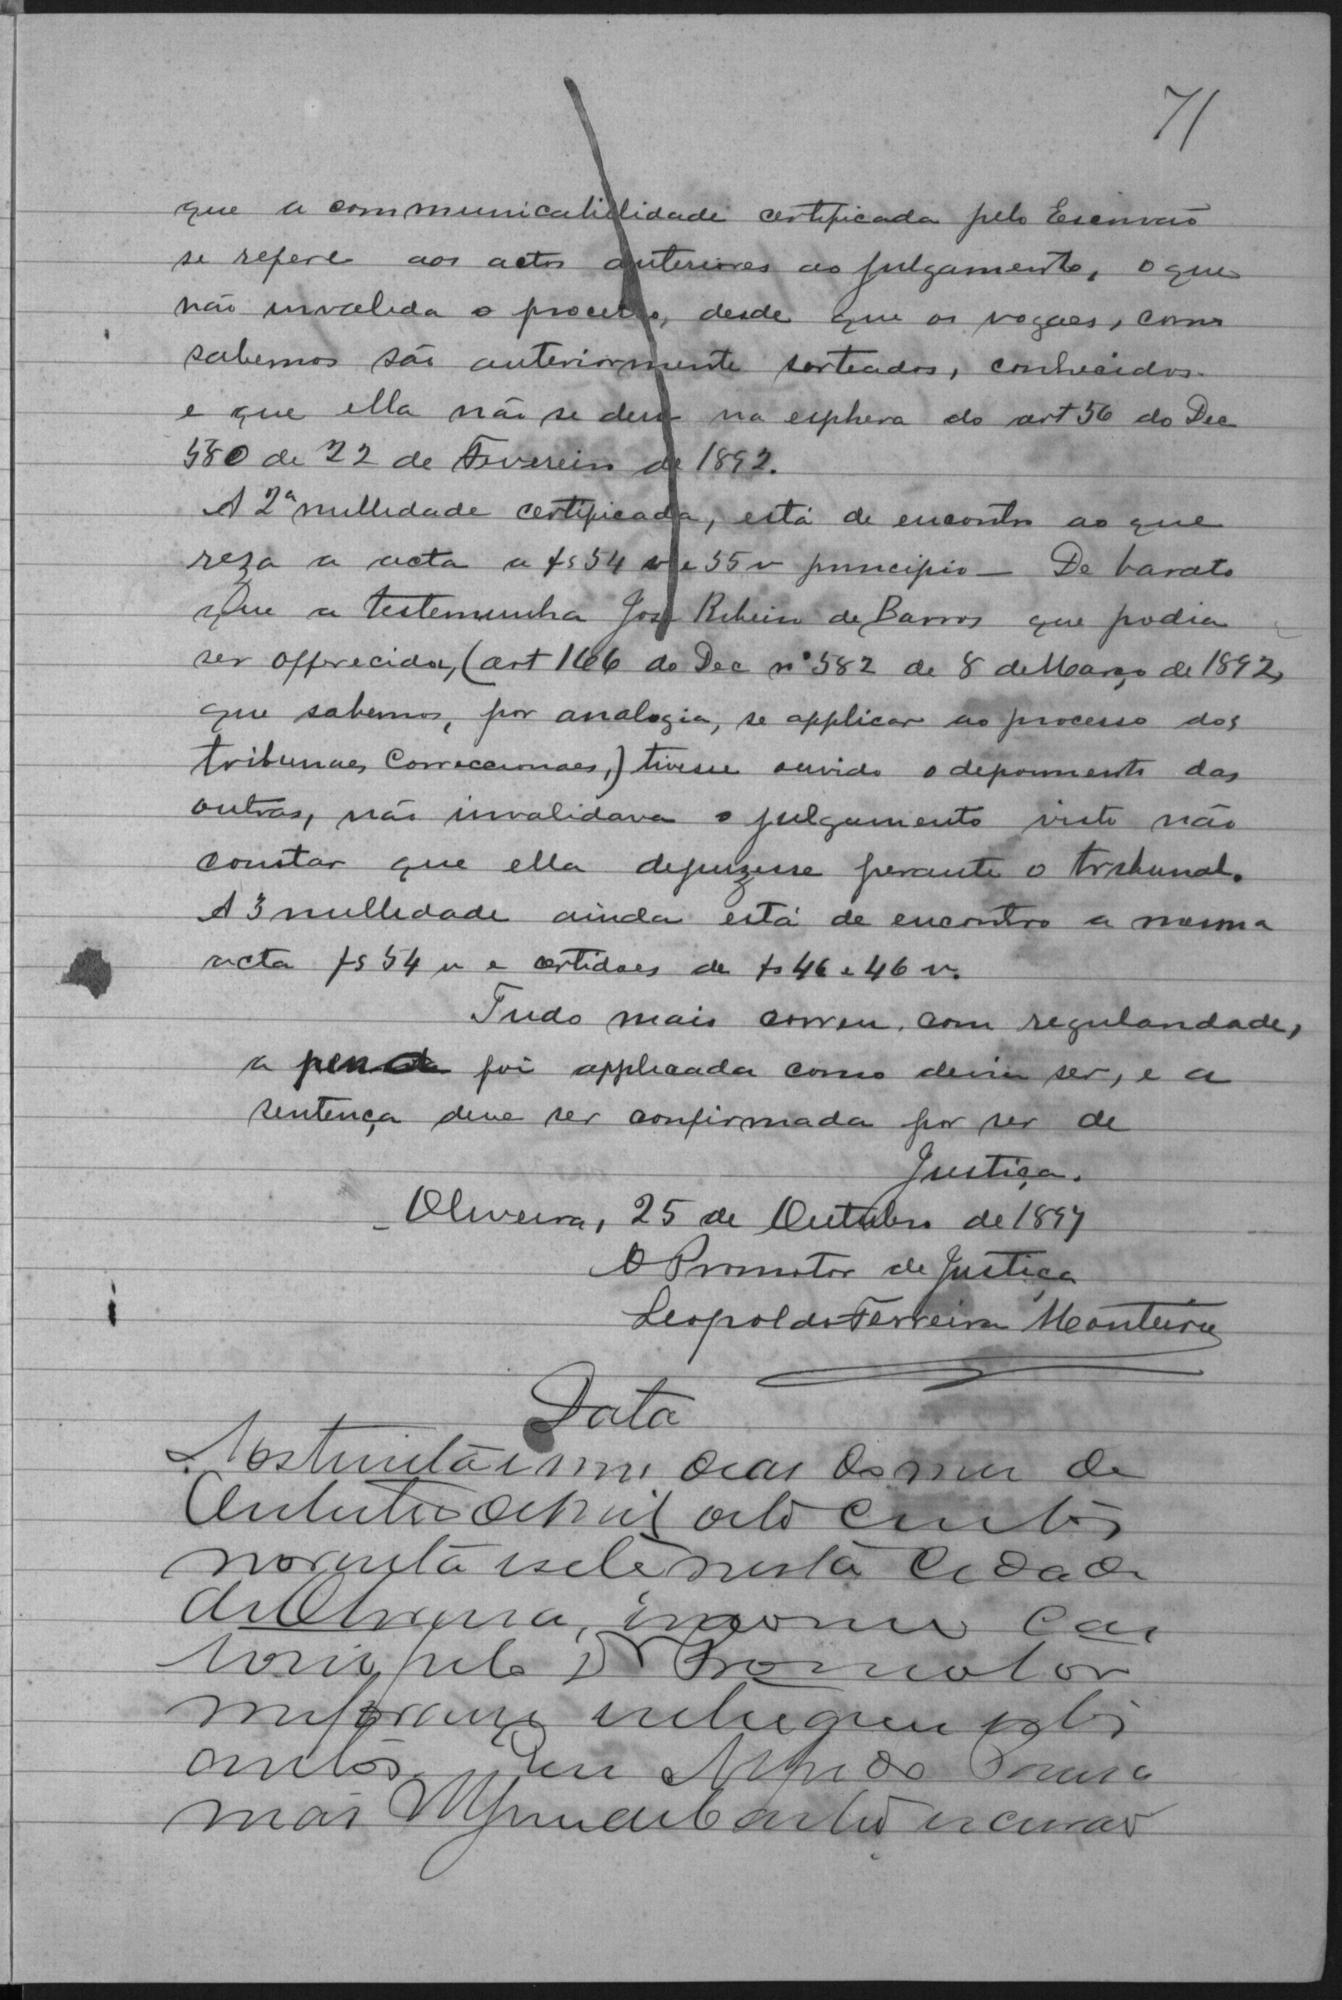 71
que a communicabilidade certificada pelo Escrivão
se refere aos actos anteriores ao julgamento, o que
não invalida o processo, desde que os vogaes, como
sabemos são anteriormente sorteados, conhecidos
e que ella não se deu na esphera do art 56 do Dec
580 de 22 de Fevereiro de 1892.
A 2ª nullidade certificada, está de encontro ao que
reza a acta a fs 54 v e 55 v principio — De barato
que a testemunha José Ribeiro de Barros que podia
ser offerecida, (art 166 do Dec nº 582 de 8 de Março de 1892,
que sabemos, por analogia, se applicar ao processo dos
tribunaes Correccionaes,) tivesse ouvido o depoimento das
outras, não invalidava o julgamento visto não
constar que ella depuzesse perante o tribunal.
A 3 nullidade ainda está de encontro a mesma
acta fs 54 v e certidões de fs 46 e 46 v.
Tudo mais correu com regularidade,
a pena foi applicada como devia ser, e a
sentença deve ser confirmada por ser de
Justiça.
Oliveira, 25 de Outubro de 1897
O Promotor de Justiça
Leopoldo Ferreira Monteiro
Data
Aos trinta e um dias do mez de
Outubro de mil oito centos
noventa e sete nesta Cidade
de Oliveira, em meu car
torio pelo Dr Promotor
me foram entregues estes
autos. Eu Alfredo
escrivão